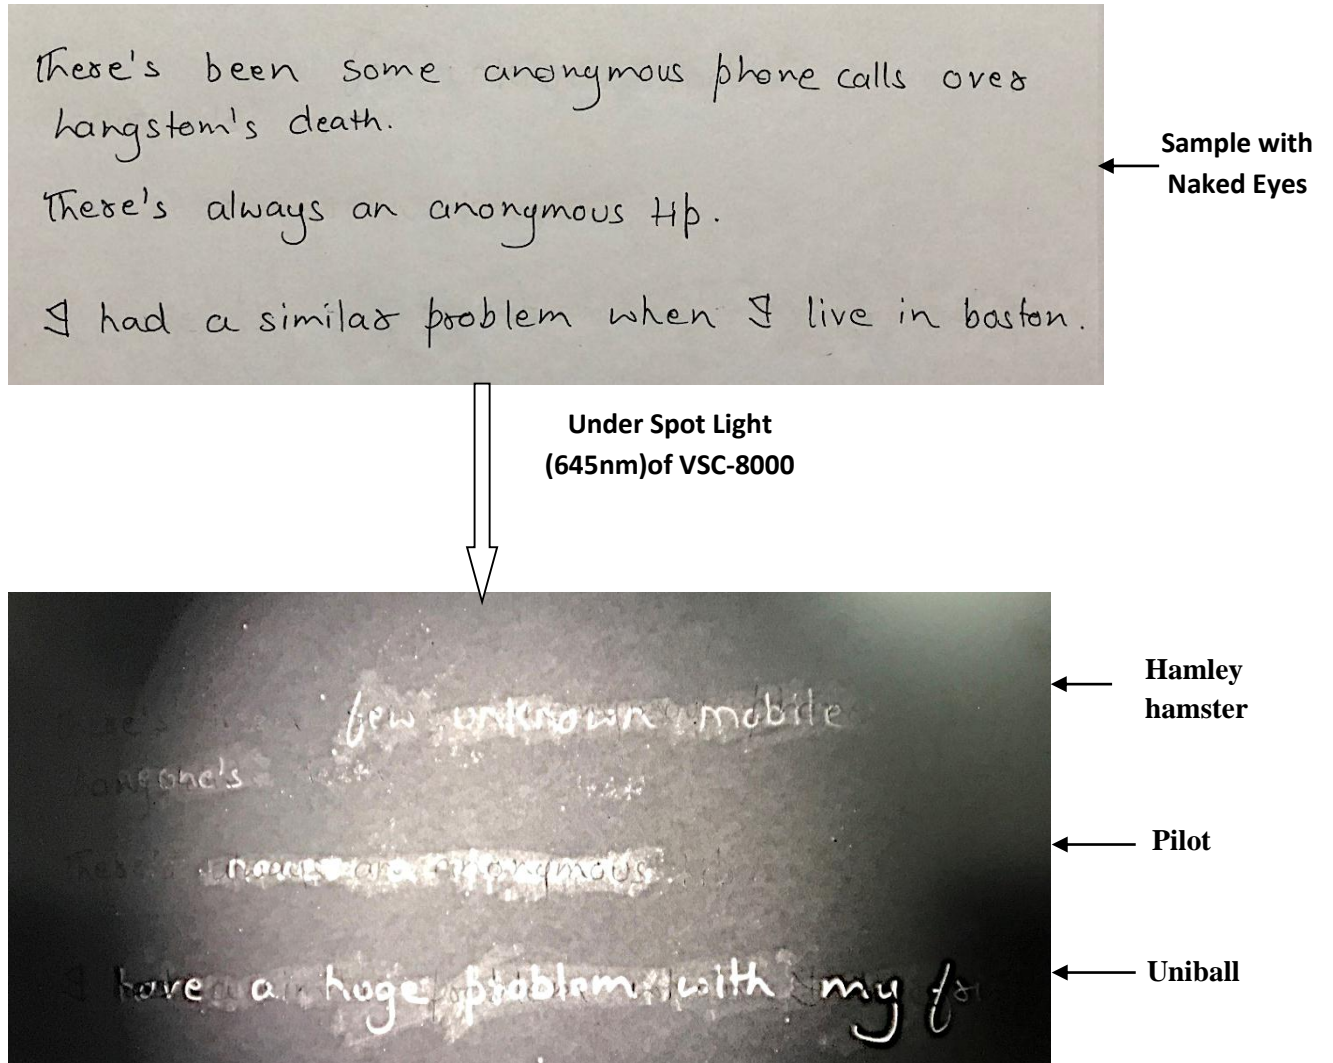 There's been some anonymous phone calls over
hangstom's death.
There's always an anonymous tip.
I had a similar problem when I live in boston.
Sample with
Naked Eyes
Under Spot Light
(645nm)of VSC-8000
few unknown mobile
Hamley
hamster
anonymous
Pilot
I have a huge problem with my
Uniball